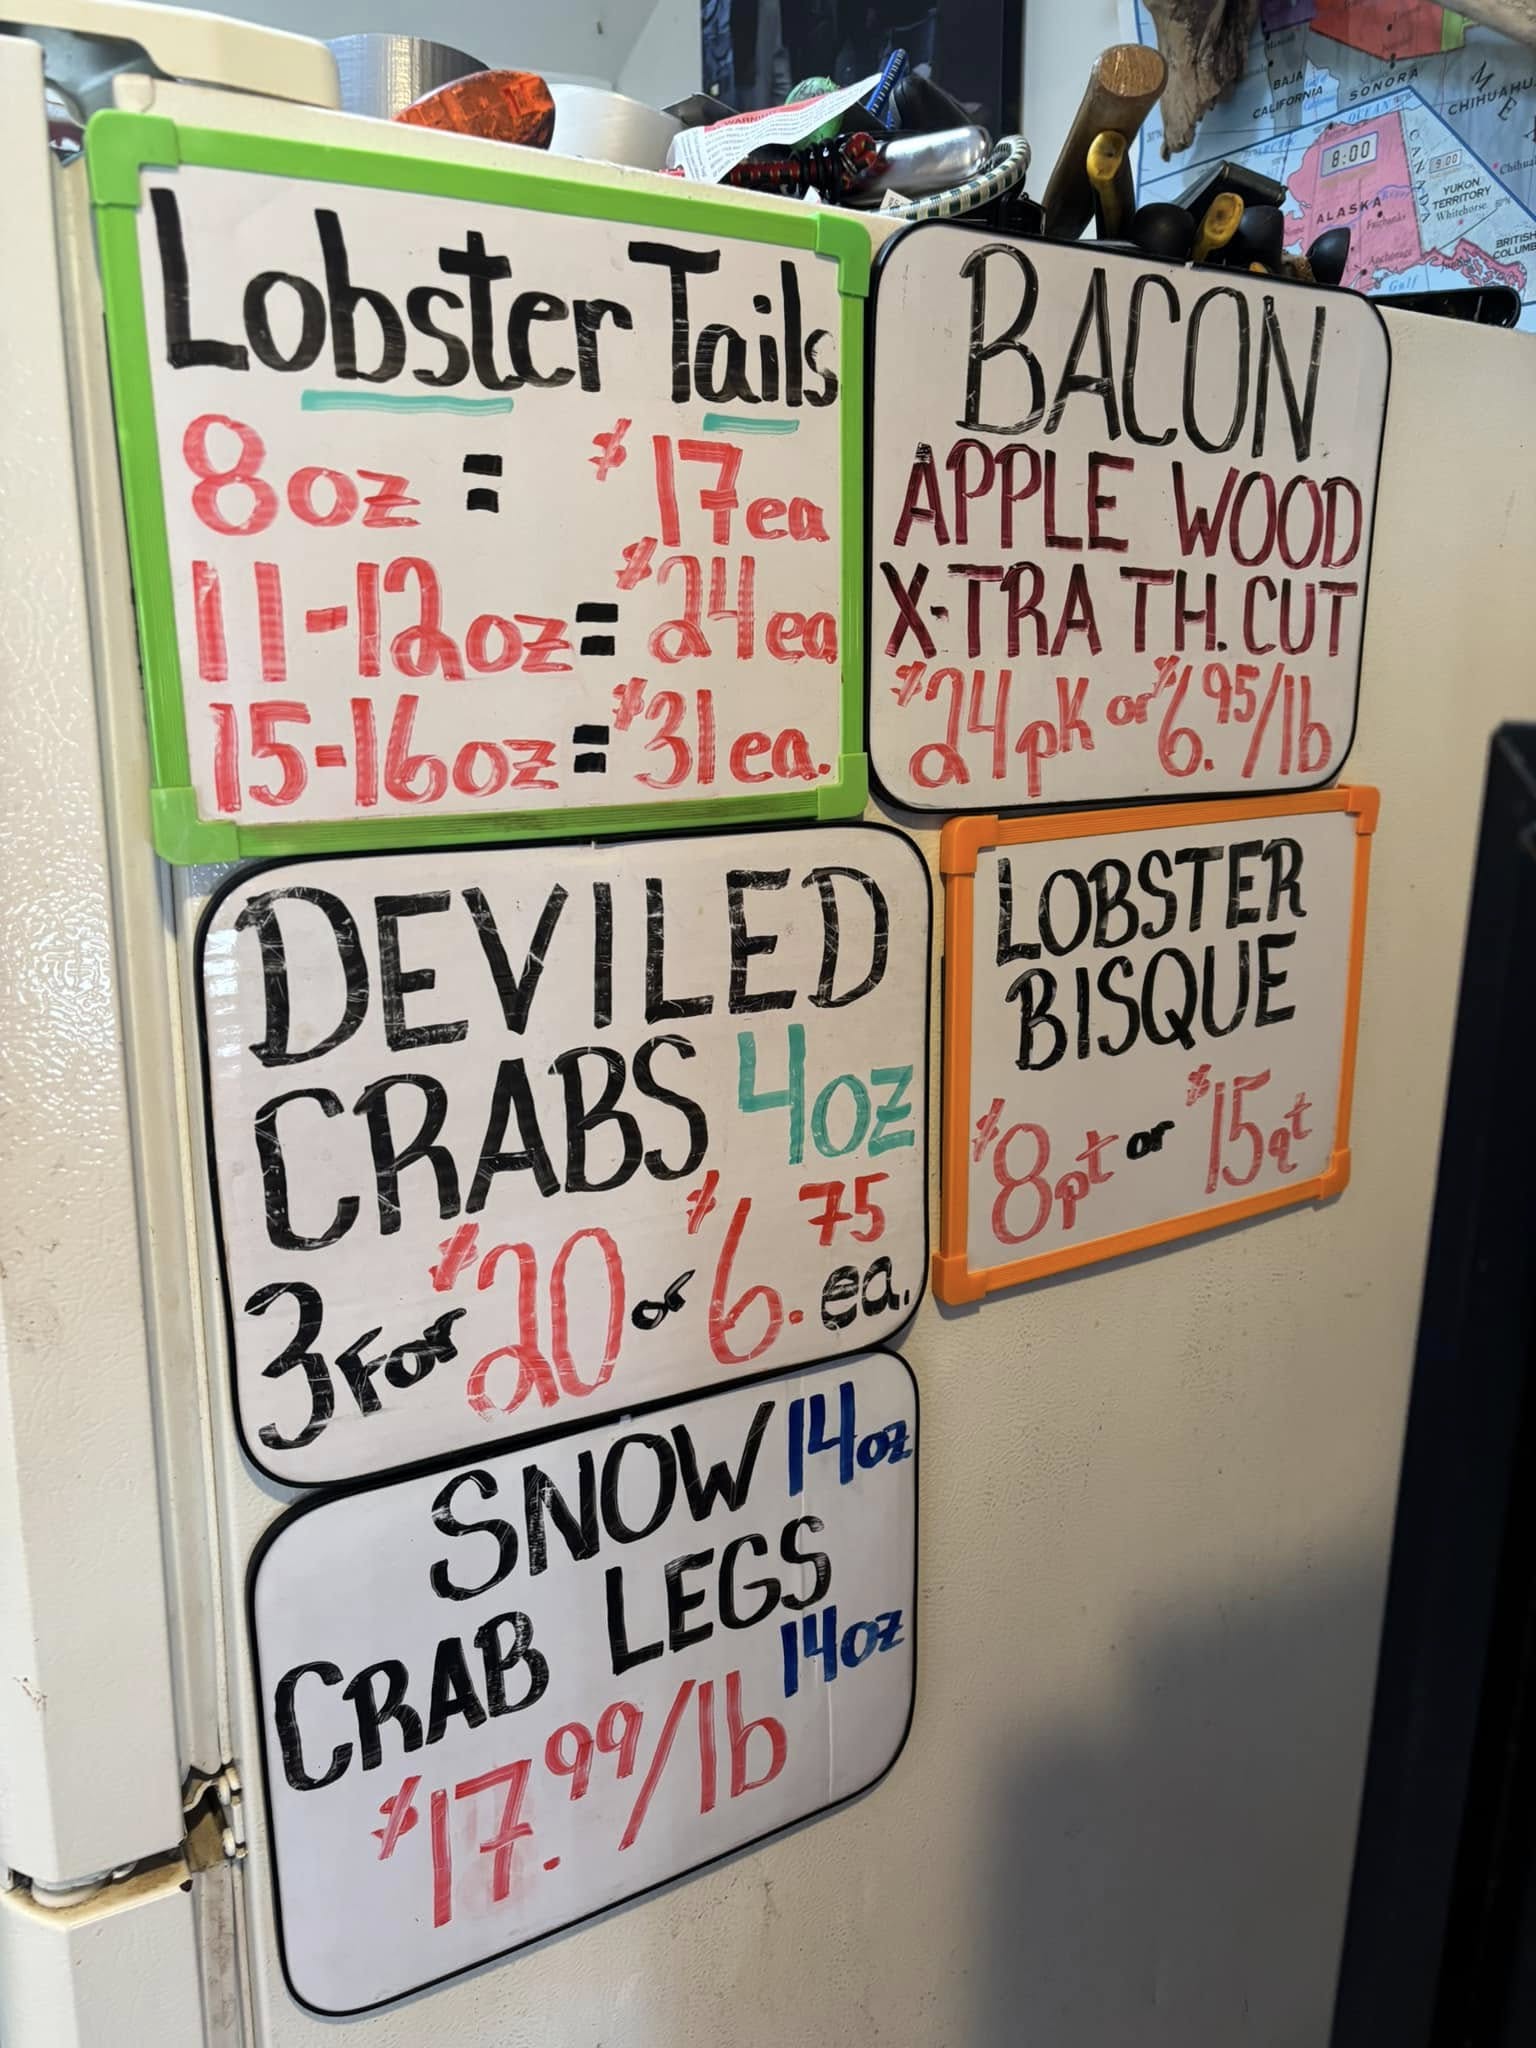 Lobster Tails
8oz = $17ea
11-12oz = $24ea
15-16oz = $31ea.
BACON
APPLE WOOD
X-TRA TH. CUT
$24pk or $6.95/lb
DEVILED
CRABS 4oz
3 For $20 or $6.75 ea.
LOBSTER
BISQUE
$8pt or $15qt
SNOW 14oz
CRAB LEGS
14oz
$17.99/lb
WARNING
BAJA
CALIFORNIA
SONORA
CHIHUAHUA
8:00
9:00
CANADA
ALASKA
Fairbanks
Anchorage
Gulf
YUKON
TERRITORY
Whitehorse
BRITISH
COLUMB